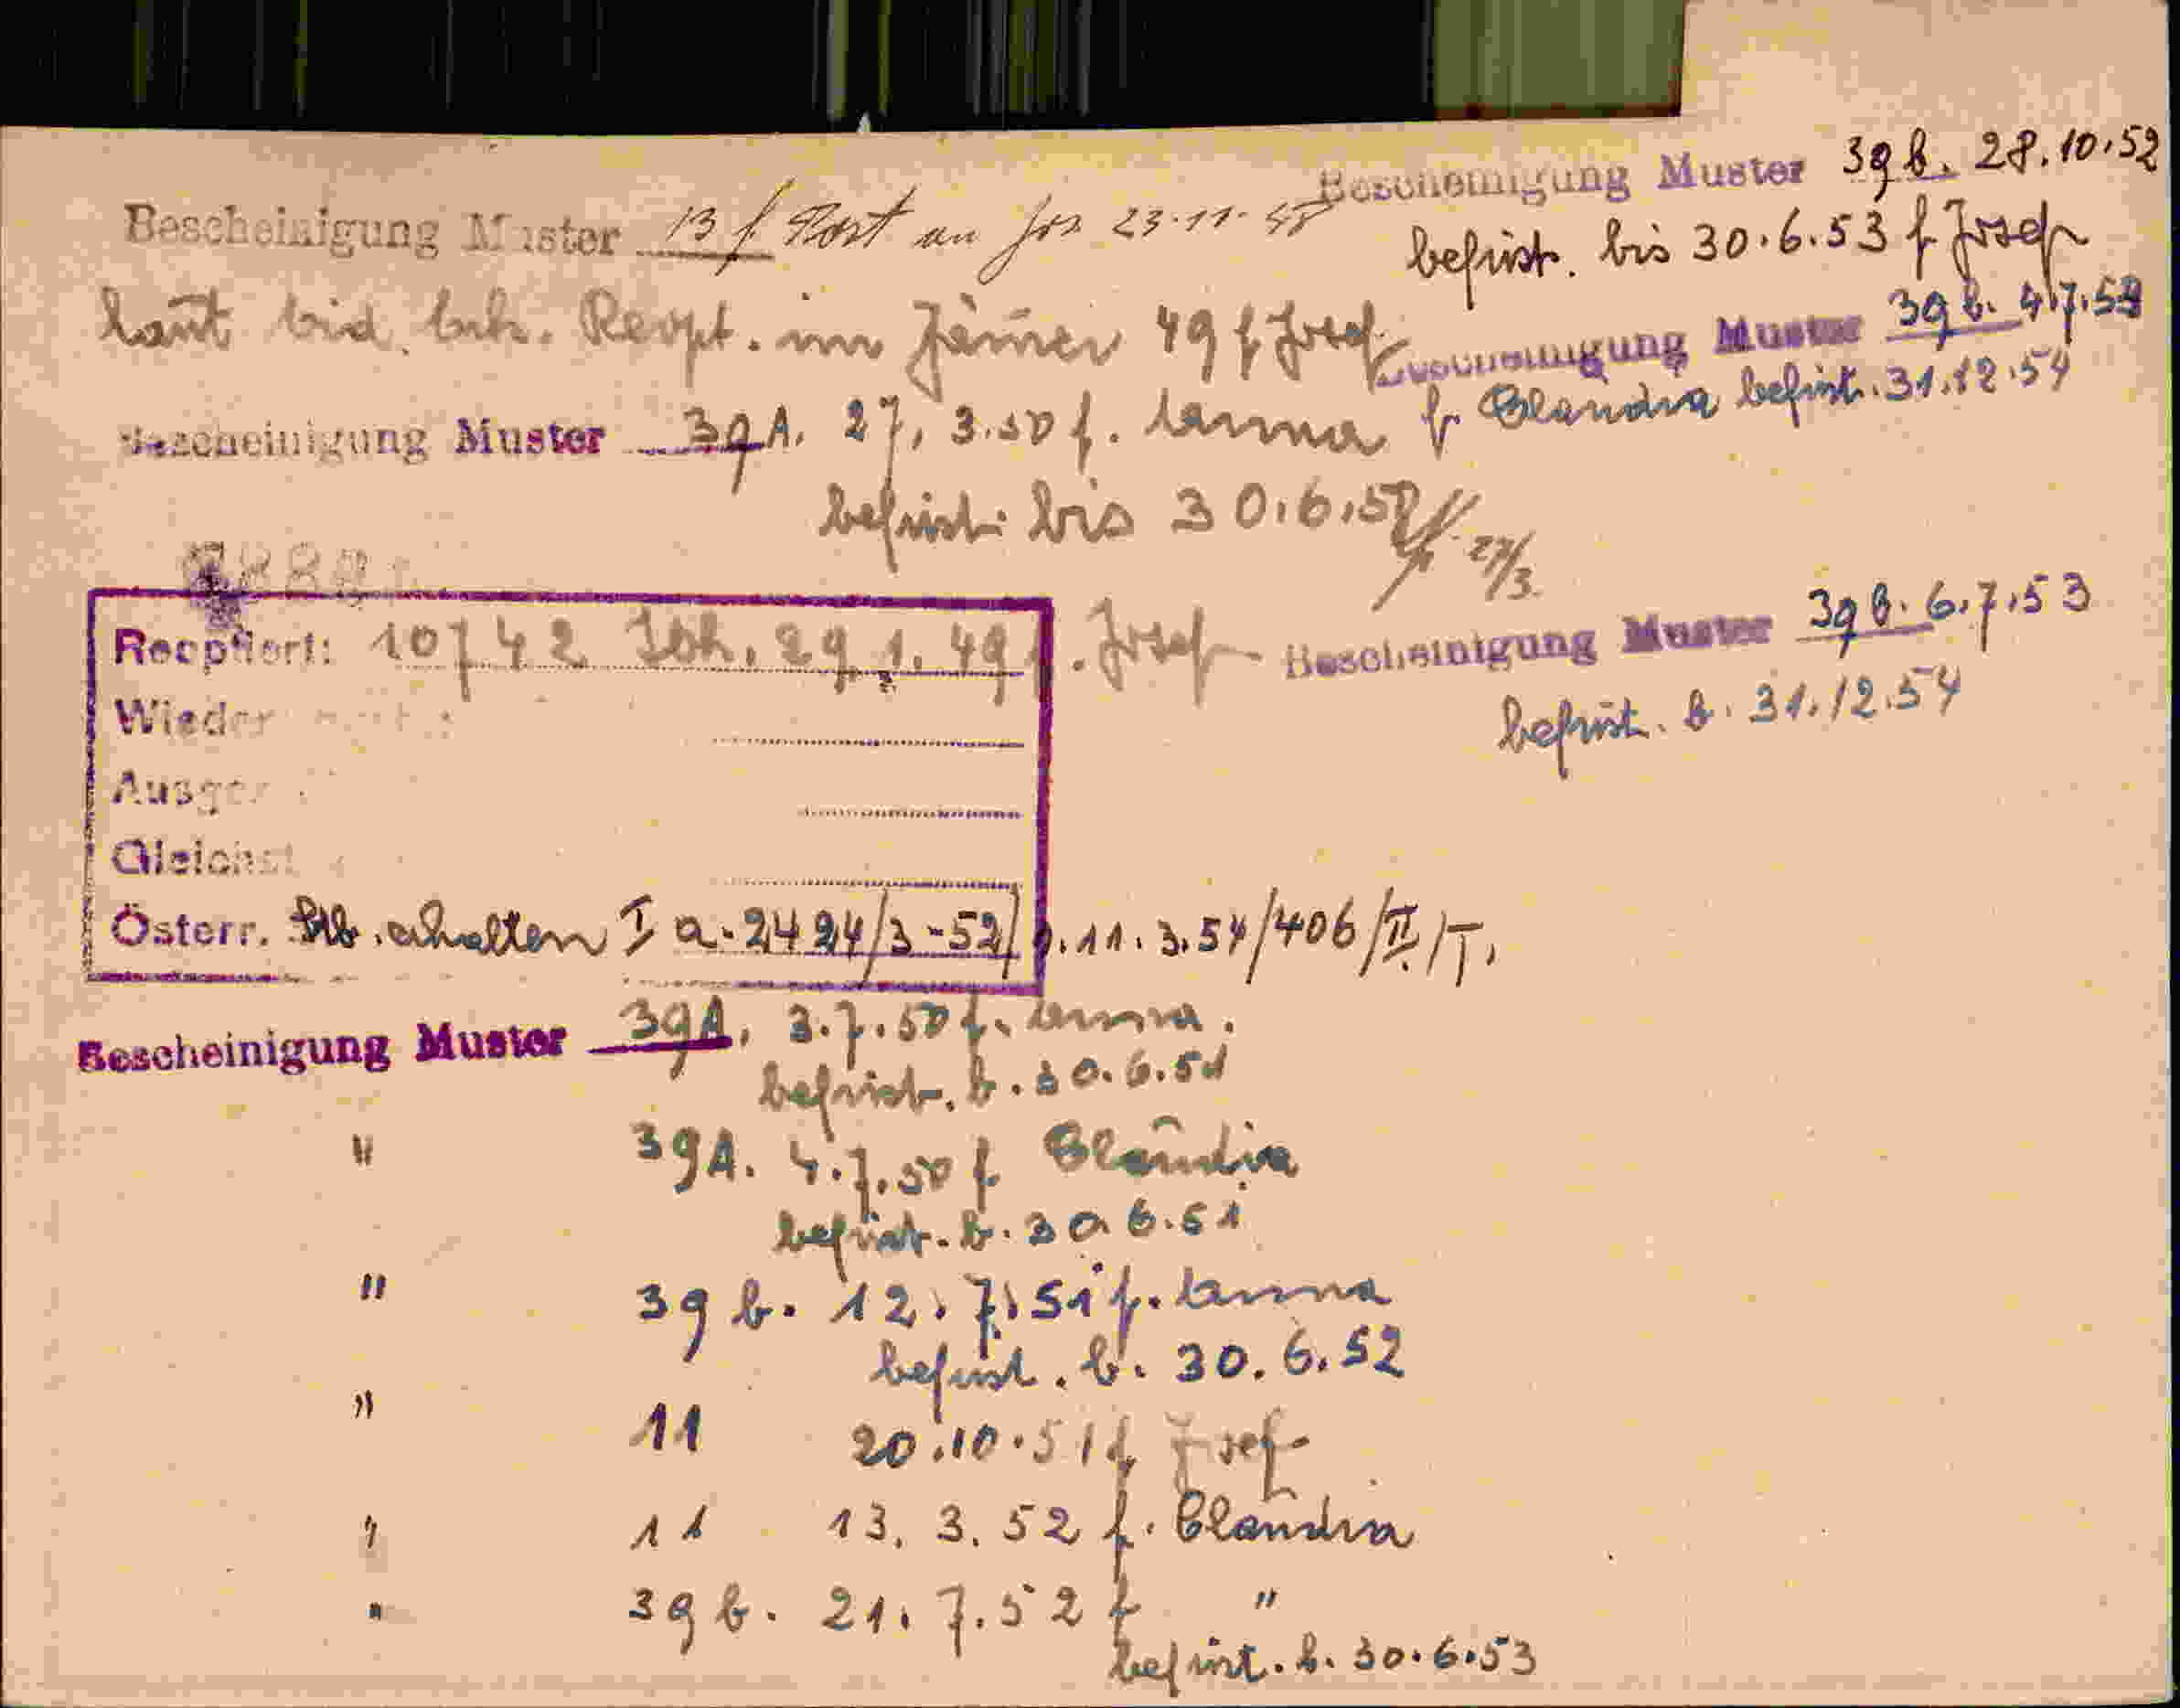 Bescheinigung Muster 39 b. 28.10.52
befrist. bis 30.6.53 f Josef
Bescheinigung Muster 13 f Post an 23.11.48
laut bid. Reopt. im Jänner 49 f Josef
Bescheinigung Muster 39 b. 4.7.53
f Claudia befrist. 31.12.54
Bescheinigung Muster 39 A. 27. 3.50 f. Anna
befrist. bis 30.6.50
27/3.
Reoptiert: 10742 Ibk. 29.1.49 f. Josef
Bescheinigung Muster 39 b. 6.7.53
befrist. b. 31.12.54
Wieder
Ausge
Gleichst
Österr. Stb. erhalten I a-2424/3-52/ .11.3.54/406/II/T.
Bescheinigung Muster 39A. 3.7.50 f. Anna.
befrist. b. 30.6.51
" 39A. 4.7.50 f Claudia
befrist. b. 30.6.51
" 39 b. 12.7.51 f. Anna
befrist. b. 30.6.52
" 11 20.10.51 f Josef
" 11 13.3.52 f. Claudia
" 39 b. 21.7.52 f "
befrist. b. 30.6.53